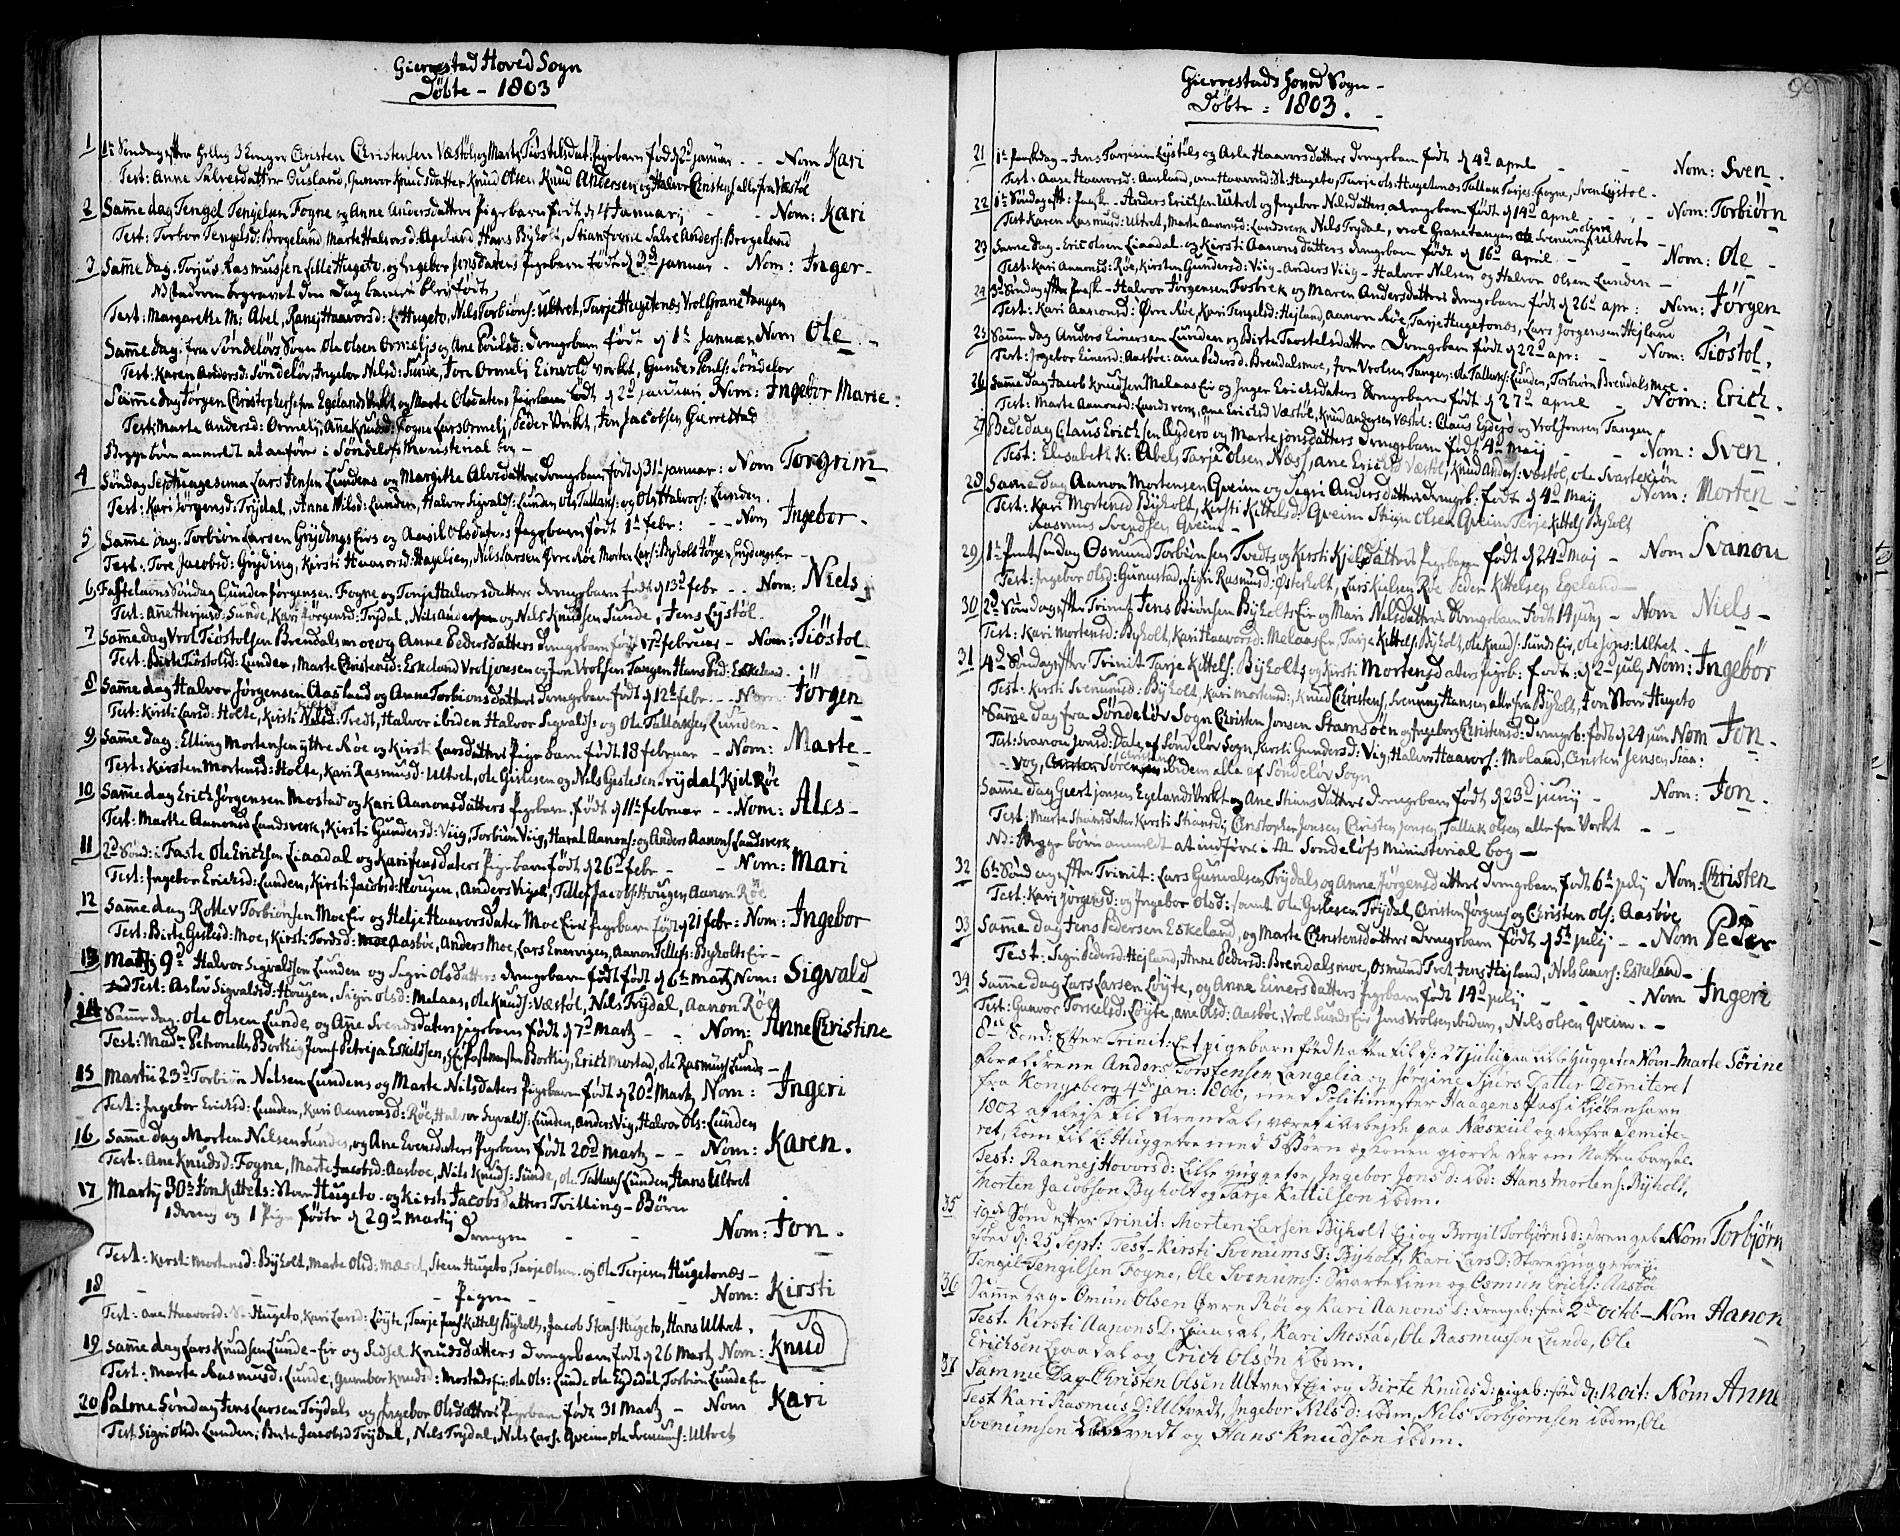 Gierrestad Hoved Sogn
Döbte - 1803
1 Søndag efter Hellig 3 Konger Christen Christensen Væstøl og Marte Tiøstelsdat: Pigebarn föd d 2d januar - - Nom Kari
Test: Anne Salvesdatter Ousland, Gunvor Knudsdatter Knud Olsen Knud Andersen og Halvor Christens: alle fra Væstøl
2 Samme dag Tengel Tengelsen Fogne og Anne Andersdatters Pigebarn födt d 4 Januarij - - Nom: Kari
Test: Torbor Tengelsd: Brogeland Marte Halvorsd: Hans Byholt, Stian Fogne Salve Anders: Brogeland
3 Samme dag. Torjus Rasmussen Lille Hugeto og Ingebor Jonsdatters Pigebarn födt d 3d januar - Nom: Inger -
Moderen begravet den Dag barnet blev födt
Test: Margarethe M: Abel, Ranej Haavorsd: L: Hugeto, Nils Torbiöns: Ultvet, Tarje Hugetonæs Vrol Grane tangen
Samme dag. fra Söndelövs Sogn Ole Olsen Ormelj og Ane Povelsd: Drengebarn födt d 1t Januar Nom Ole -
Test: Karen Andersd: Söndelöv, Ingebor Nilsd: Sunde, Jon Ormelj Einvold vorkt, Gunder Pouls: Söndelöv
Samme dag Jörgen Christophersen Egelands Verk og Marte Olsdaters Pigebarn födt d 2d januari Nom: Ingebor Marie:
Test: Marte Andersd: Ormelj, Anne Knudsd: Fogne Lars Ormelj, Peder Vorkt, Jon Jacobsen Gierrestad
Begge börn anmeldt at anføre i Søndeløfs Ministerial bog -
4 Söndag Septuagesima Lars Jensen Lundens og Margrethe Alvesdatters Drengebarn födt d 31t januar: Nom Torgrim
Test: Kari Jörgensd: Trydal, Anne Nilsd: Lunden, Halvor Sigvalds: Lunden Ole Tallaks: og Ole Halvors: Lunden.
5 Samme dag. Torbiön Larsen Grydings Eirs og Aasil Olsdaters Pigebarn födt 1t febr: - - Nom Ingebor -
Test. Tore Jacobsd: Gryding, Kirsti Haavorsd: Hagelien, Nils Larsen Øvre Røe Morten Lars: Byholt Jörgen Grydingseir -
6 Fastelavns Söndag Gunder Jörgensen Fogne og Torje Halvorsdatters drengebarn födt d 13d febr - - Nom: Niels
Test: Anne Herjusd: Sunde, Kari Jörgensd: Trydal, Nils Andersen og Nils Knudsen Sunde, Jens Lystøl
7 Samme dag Vrol Tiøstolsen Brendalsmoe og Anne Pedersdatters drengebarn födt 17 februar - Nom: Tiöstol
Test: Birte Tiøstolsd: Lunden, Marte Christensd: Eskeland Vrol Jonsen og Jon Vrolsen Tangen Hans Ped: Eskeland.
8 Samme dag Halvor Jörgensen Aasland og Anne Torbionsdatters drengebarn födt d 12d febr. - - Nom: Jörgen
Test: Kirsti Larsd: Holte, Kirsti Nilsd: Tvedt, Halvor ibiden Halvor Sigvalds: og Ole Tallaksen Lunden -
9 Samme dag: Elling Mortensen yttre Røe og Kirsti Larsdatters Pigebarn födt 18 februar - Nom: Marte -
Test: Kirsten Mortensd: Holte, Kari Rasmusd: Ultvet, Ole Gislesen og Nils Gislesen Trijdal, Kjel Røe
10 Samme dag Erich Jörgensen Mostad og Kari Aanonsdatters Pigebarn. födt d 11t februar - - Nom: Ales -
Test: Marthe Aanonsd Landsverk, Kirsti Gundersd: Viig, Torbiön Viig, Haral Aanons: og Anders Aanons Landsverk
11 2d Sönd: i Faste Ole Erichsen Liaadal og Kari Jensdaters Pigebarn födt d 26d febr - - Nom: Mari
Test: Ingebor Ericksd: Lunden, Kirsti Jacobsd: Hougen, Anders Vigel, Tellef Jacobs: Hougen, Aanon Röe
12 Samme dag Rollev Torbiönsen Moe Eir og Helje Haavorsdater Moe Eirs Pigebarn födt d 21 febr = Nom: Ingebor
Test: Birte Gislesd: Moe, Kirsti Tordsd: Aasböe, Anders Moe, Lars Enervigen, Aanon Tellefs: Byholts Eir -
13 Martij 9d Halvor Sigvaldson Lunden og Sigri Olsdatters drengebarn födt d 6te Martz Nom: Sigvald
Test: Aslov Sigvaldsd: Hougen, Sigri Olsd: Melaas, Ole Knuds: Væstöl, Nils Trydal, Aanon Röe
14 Samme dag: Ole Olsen Lunde, og Ane Svendsdaters pigebarn födt d 7d Martz - - Nom: Anne Christine
Test: Madm Petronelle Borthig Jomf Petrija Eskildsen, Postmester Borthig, Erich Mostad, Ole Rasmussen Lunde -
15 Martii 23d Torbiön Nilsen Lundens og Marte Nilsdaters Pigebarn födt d 20d Martz Nom: Ingeri
Test: Ingebor Ericksd: Lunden, Kari Aanonsd: Röe, Halvor Sigvalds: Lunden, Anders Viig, Halvor Ols: Lunden
16 Samme dag Morten Nilsen Sundes, og Ane Evensdaters Pigebarn födt 20d Martz - - Nom: Karen.
Test: Ane Knudsd: Fogne, Marte Jacobsd: Aasboe, Nils Knuds: Sunde, Ole Tallaks: Lunden, Hans Ultvet
17 Martij 30t Jon Kittels: Stor Hugeto. og Kirsti Jacobsdatters Tvilling - Börn
1 dreng og 1 Pige födte d 29d Martij
Drengen - - - Nom: Jon.
Test: Kirsti Mortensd: Byholt, Marte Olsd: Næset, Steen Hugeto, Tarje Olsen og Ole Terjesen Hugetonæs -
18 - - Pigen - - Nom: Kirsti
Test: Ane Haavorsd: St: Hugeto, Kari Larsd: Löyte, Tarje Kittels Byholt, Jacob Stens: Hugeto, Hans Ultvet.
19 Samme dag Lars Knudsen Lunde-Eir og Sidsel Knudsdatters drengebarn födt d 26 Martz Nom: Knud
Test. Marte Rasmusd: Lunde, Gunnbor Knudsd: Mostads Ei: Ole Ols: Lunde Ole Eydedal, Torbiön Lunde Eir
20 Palme Söndag Jens Larsen Trydals og Ingebor Olsdatters Pigebarn födt 31 Martz - Nom Kari
Test Sigri Olsd: Lunden, Birte Jacobsd Trydal, Nils Trydal, Nils Lars: Qveim, Ole Svenums: Ultvet
Gierrestads Hoved Sogn -
Döbte = 1803. -
21 1t Paaskdag - Jens Tarjesen Lystöls og Asle Haavorsdatters drengebarn födt d 4d april - - Nom: Sven.
Test: Aase Haavorsd: Aasland, Ane Haavorsd: St: Hugeto, Tarje Ols: Hugetonæs Tallak Tarjes: Fogne, Sven Lystol -
22 1t Söndag eft: Paask - Anders Erichsen Ultvet og Ingebor Nilsdatters drengebarn födt d 14d april - - Nom: Torbiörn
Test Karen Rasmusd: Ultvet, Marte Aanonsd: Landsverk Nils Trydal, Vrol Granetangen Svenum Ultvet -
23 Samme dag - Eric Olsen Liaadal - og Kirsti Aanonsdatters drengebarn födt d 16d April - - Nom: Ole -
Test: Kari Aanonsd: Röe, Kirsten Gundersd: Viig - Anders Viig - Halvor Nilsen og Halvor Olsen Lunden -
24 3d Söndag efter Paask - Halvor Jörgensen Fosbrek og Maren Andersdatters drengebarn födt d 26d apr: Nom: Jörgen
Test: Kari Aanonsd: Øvre Röe, Kari Tengelsd: Hejland, Aanon Röe, Tarje Hugetonæs, Lars Jörgensen Hejland
25 Samme dag Anders Einersen Lunden og Birte Tiøstelsdatter Drengebarn födt d 22d apr: - Nom: Tiöstol.
Test: Ingebor Einersd: Aasböe: Ane Pedersd: Brendalsmoe, Jon Vrolsen Tangen: Ole Tallaks: Lunden, Torbiörn Brendalsmoe.
26 Samme dag Jacob Knudsen Melaas Eir og Inger Ericksdaters drengebarn födt d 27d april - Nom: Erich.
Test: Marte Aanonsd: Lundsverg, Ane Ericksd Væstöl, Knud Andersen Væstöl: Claus Eyderö og Vrol Jonsen Tangen
27 Bededag Claus Erichsen Eyderö og Marte Jonsdatters drengebarn födt 4d Maij - Nom: Sven.
Test: Elisabeth K: Abels Tarje Olsen Næss, Ane Ericksd Væstöl, Knud Anders: Væstöl, Ole Svartekiön
28 Samme dag Aanon Mortensen Qveim og Sigri Andersdatters drengeb: födt d 4d Maij - Nom: Morten -
Test: Kari Mortensd Byholt, Kirsti Kittelsd: Qveim Stian Olsen Qveim Terje Kittels: Byholt
Rasmus Svendsen Qveim -
29 1t Pintsendag Osmund Torbiönsen Tvedts og Kirsti Kjelsdatters Pigebarn födt d 24d Maj - Nom Svanou
Test: Ingebor Olsd: Gunustad, Sigri Rasmusd: Østerholt, Lars Kielsen Röe Peder Kittelsen Egeland -
30 2d Söndag efter Trinit Jens Biönsen Byholts Eir og Mari Nilsdatters Drengebarn födt 14 junij - Nom Niels -
Test: Kari Mortensd: Byholt, Kari Haavorsd: Melaas Eir, Tarje Kittels: Byholt, Ole Knuds: Sunds Eir, Ole Jons: Ultvet -
31 4d Söndag efter Trinit Tarje Kittels: Byholts og Kirsti Mortensdaters pigeb: födt d 2d julj Nom: Ingebör
Test: Kirsti Svenumsd: Byholt, Kari Mortensd: Knud Christens, Svenung Hansen alle fra Byholt, Jon Stoer Hugeto
Samme dag fra Söndelöv Sogn Christen Jonsen Stamsöen og Ingeborg Christensd: Drengeb: födt d 24 juni Nom Jon.
Test: Svanou Jonsd: Dale af Söndelöv Sogn, Kirsti Gundersd: Vig, Halvor Haavors: Moland, Christen Jensen Siaa:
- vog, Sören ibidem alle af Söndelöv Sogn
Samme dag Giert Jonsen Egelands Verkt og Ane Stiansdatters drengebarn födt d 23d junij - Nom: Jon.
Test: Marte Stiansdater Kirsti Stiansd: Christopher Jonsen, Christen Jonsen, Tallak Olsen alle fra Vorkt - -
Nb: Begge börn anmeldt at indføre i M Søndeløfs Ministerial bog -
32 6te Sönd ag efter Trinit: Lars Gunvalsen Trydals og Anne Jörgensdatters drengebarn födt 6t julij Nom - Christen
Test: Kari Jörgensd: og Ingebor Olsd: samt Ole Gislesen Trydal, Christen Jörgens: og Christen Ols: Aasböe
33 Samme dag Jens Pedersen Eskeland, og Marte Christensdatters drengebarn födt d 5t julij - - Nom Peder
Test: Sigri Pedersd: Hejland, Anne Pedersd: Brendalsmoe, Osmund Tvet Jens Hejland, Nils Einers: Eskeland -
34 Samme dag Lars Larsen Löyte, og Anne Einersdatters pigebarn födt 14d julij - - - Nom Ingeri
Test: Gunvor Torkelsd: Löyte, Ane Olsd: Aasböe, Vrol Sunds Eir Jens Vrolsen ibidem, Niels Olsen Qveim. -
8de Sönd: Efter Trinit: Et pigebarn föed Natten til d: 27 julij paa Lille Huggetoe Nom - Marte Sörine
forældrene Anders Torstensen Langelia og Jörgine Spirs Datter Demiteret
fra Kongsberg 4de jan: 1800, med Politimester Haagens Pass i Kjöbenhavn
1802 afrejse til Arendal, været i Arbejde paa Næskiil og derfra Demite-
ret, kom til L: Huggetoe med 5 Börn og konen giorde der om Natten barsel.
Test: Rannej Hovorsd: Lille Huggetoe, Ingebor Jons D: ibd: Hans Mortens: Byholt,
Morten Jacobson Byholt og Tarje Kittilson ibdm.
35 19de Sönd efter Trinit: Morten Larsen Bijholt Eje og Borgil Torbjörns D: drengeb: Nom Torbjörn
föed d: 25 Sept: Test - Kirsti Svenums D: Bijholt, Kari Lars D: Store Huggetoe:
Tengil Tengilsen Fogne, Ole Svenums: Svartetien og Osmun Erichs: Aasböe
36 Samme dag - Omun Olsen Øvre Röe og Kari Aanons D: drengeb: föed 2de Octb: - Nom Aanon
Test. Kirsti Aanons D: Liaadal, Kari Mostad, Ole Rasmusson Lunde, Ole
Erichsen Liaadal og Erich Olsön ibdm.
37 Samme Dag - Christen Olsen Ultvedt Eje og Birte Knudsd: pigeb: föed d: 12 Oct: Nom Anne
Test Kari Rasmus D: Ultvedt, Ingebor Nils D: ibdm, Nils Torbjörnsen ibdm, Ole
Svenumsen Ultvedt og Hans Knudson ibdm.